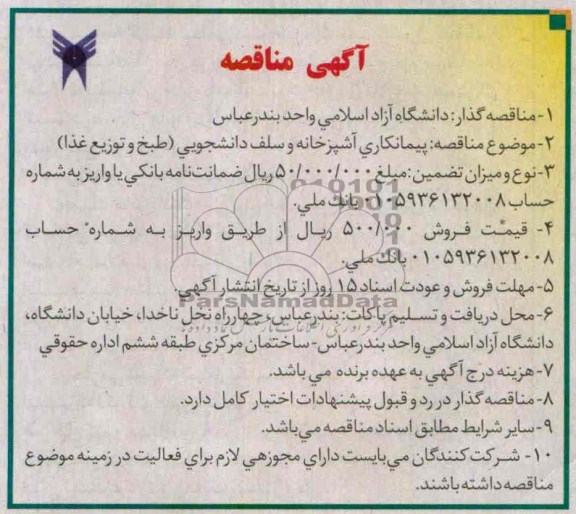 آگهی مناقصه
۱- مناقصه گذار: دانشگاه آزاد اسلامي واحد بندرعباس
۲- موضوع مناقصه: پيمانكاري آشپزخانه و سلف دانشجويي (طبخ و توزيع غذا)
۳- نوع و ميزان تضمين: مبلغ ۵۰/۰۰۰/۰۰۰ ريال ضمانت نامه بانكي يا واريز به شماره
حساب ۰۱۰۵۹۳۶۱۳۲۰۰۸ بانك ملي.
۴- قيمت فروش ۵۰۰/۰۰۰ ريال از طريق واريز به شماره حساب
۰۱۰۵۹۳۶۱۳۲۰۰۸ بانك ملي.
۵- مهلت فروش و عودت اسناد ۱۵ روز از تاريخ انتشار آگهي.
ParsNamadData
۶- محل دريافت و تسليم پاكات: بندرعباس، چهارراه نخل ناخدا، خيابان دانشگاه،
دانشگاه آزاد اسلامي واحد بندرعباس- ساختمان مركزي طبقه ششم اداره حقوقي
۷- هزينه درج آگهي به عهده برنده مي باشد.
۸- مناقصه گذار در رد و قبول پيشنهادات اختيار كامل دارد.
۹- ساير شرايط مطابق اسناد مناقصه مي‌باشد.
۱۰- شركت كنندگان مي‌بايست داراي مجوزهي لازم براي فعاليت در زمينه موضوع
مناقصه داشته باشند.